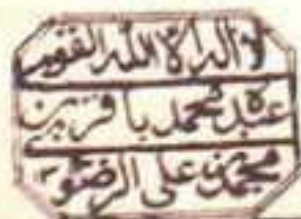 لا اله الا الله القوی
عبده محمد باقر بن
محمد علی الرضوی